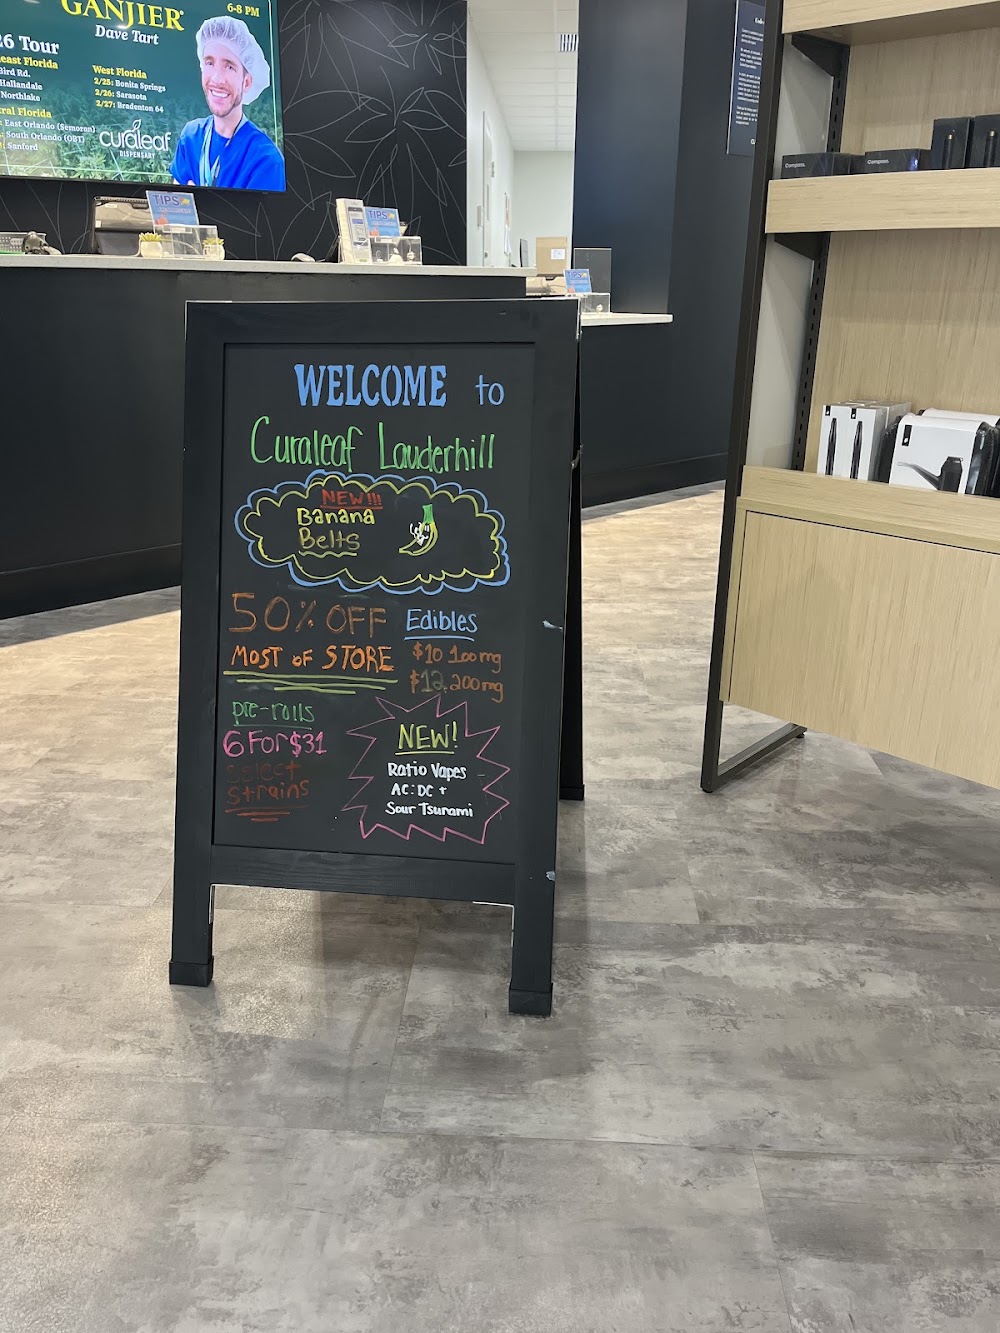 GANJIER
6-8 PM
Dave Tart
26 Tour
east Florida
Bird Rd.
Hallandale
Northlake
tral Florida
East Orlando (Semoran)
South Orlando (OBT)
Sanford
West Florida
2/25: Bonita Springs
2/26: Sarasota
2/27: Bradenton 64
curaleaf
DISPENSARY
TIPS
TIPS
TIPS
Compass.
Compass.
WELCOME to
Curaleaf Lauderhill
NEW!!!
Banana
Belts
50% OFF
MOST OF STORE
Edibles
$10 100mg
$12 200mg
pre-rolls
6 For $31
Select
Strains
NEW!
Ratio Vapes
AC:DC +
Sour Tsunami